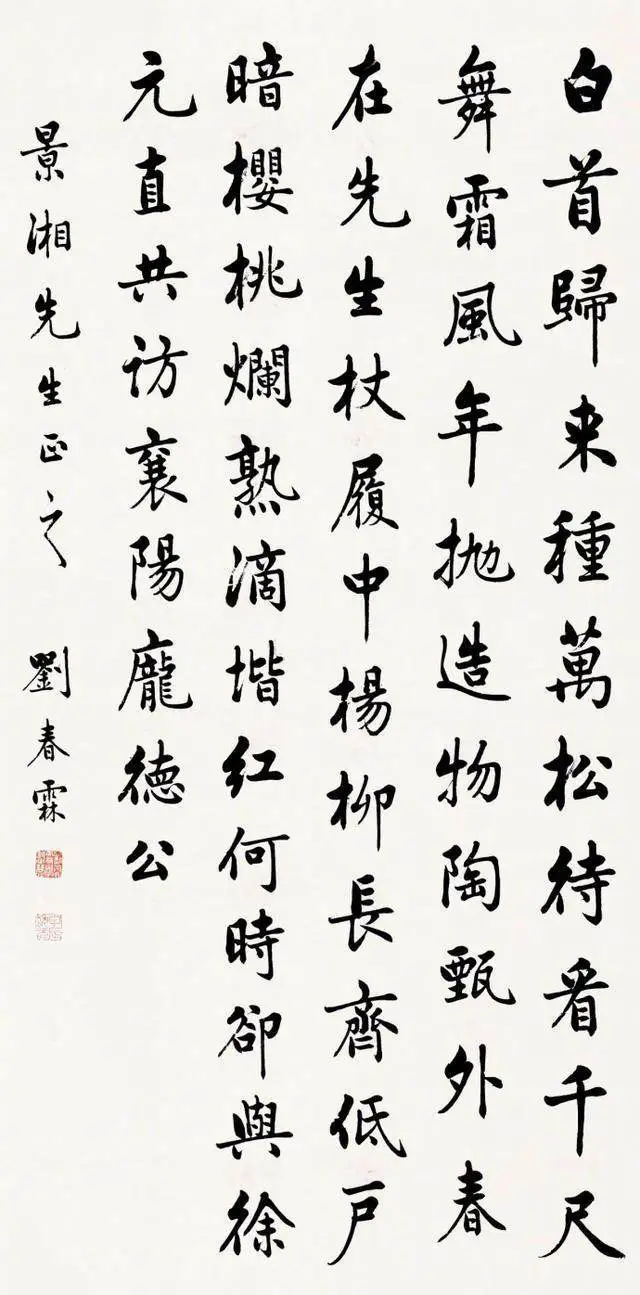 白首歸来種萬松待看千尺
舞霜風年抛造物陶甄外春
在先生杖履中楊柳長齊低戸
暗櫻桃爛熟滴堦红何時卻與徐
元直共访襄陽龐德公
景湘先生正之 劉春霖